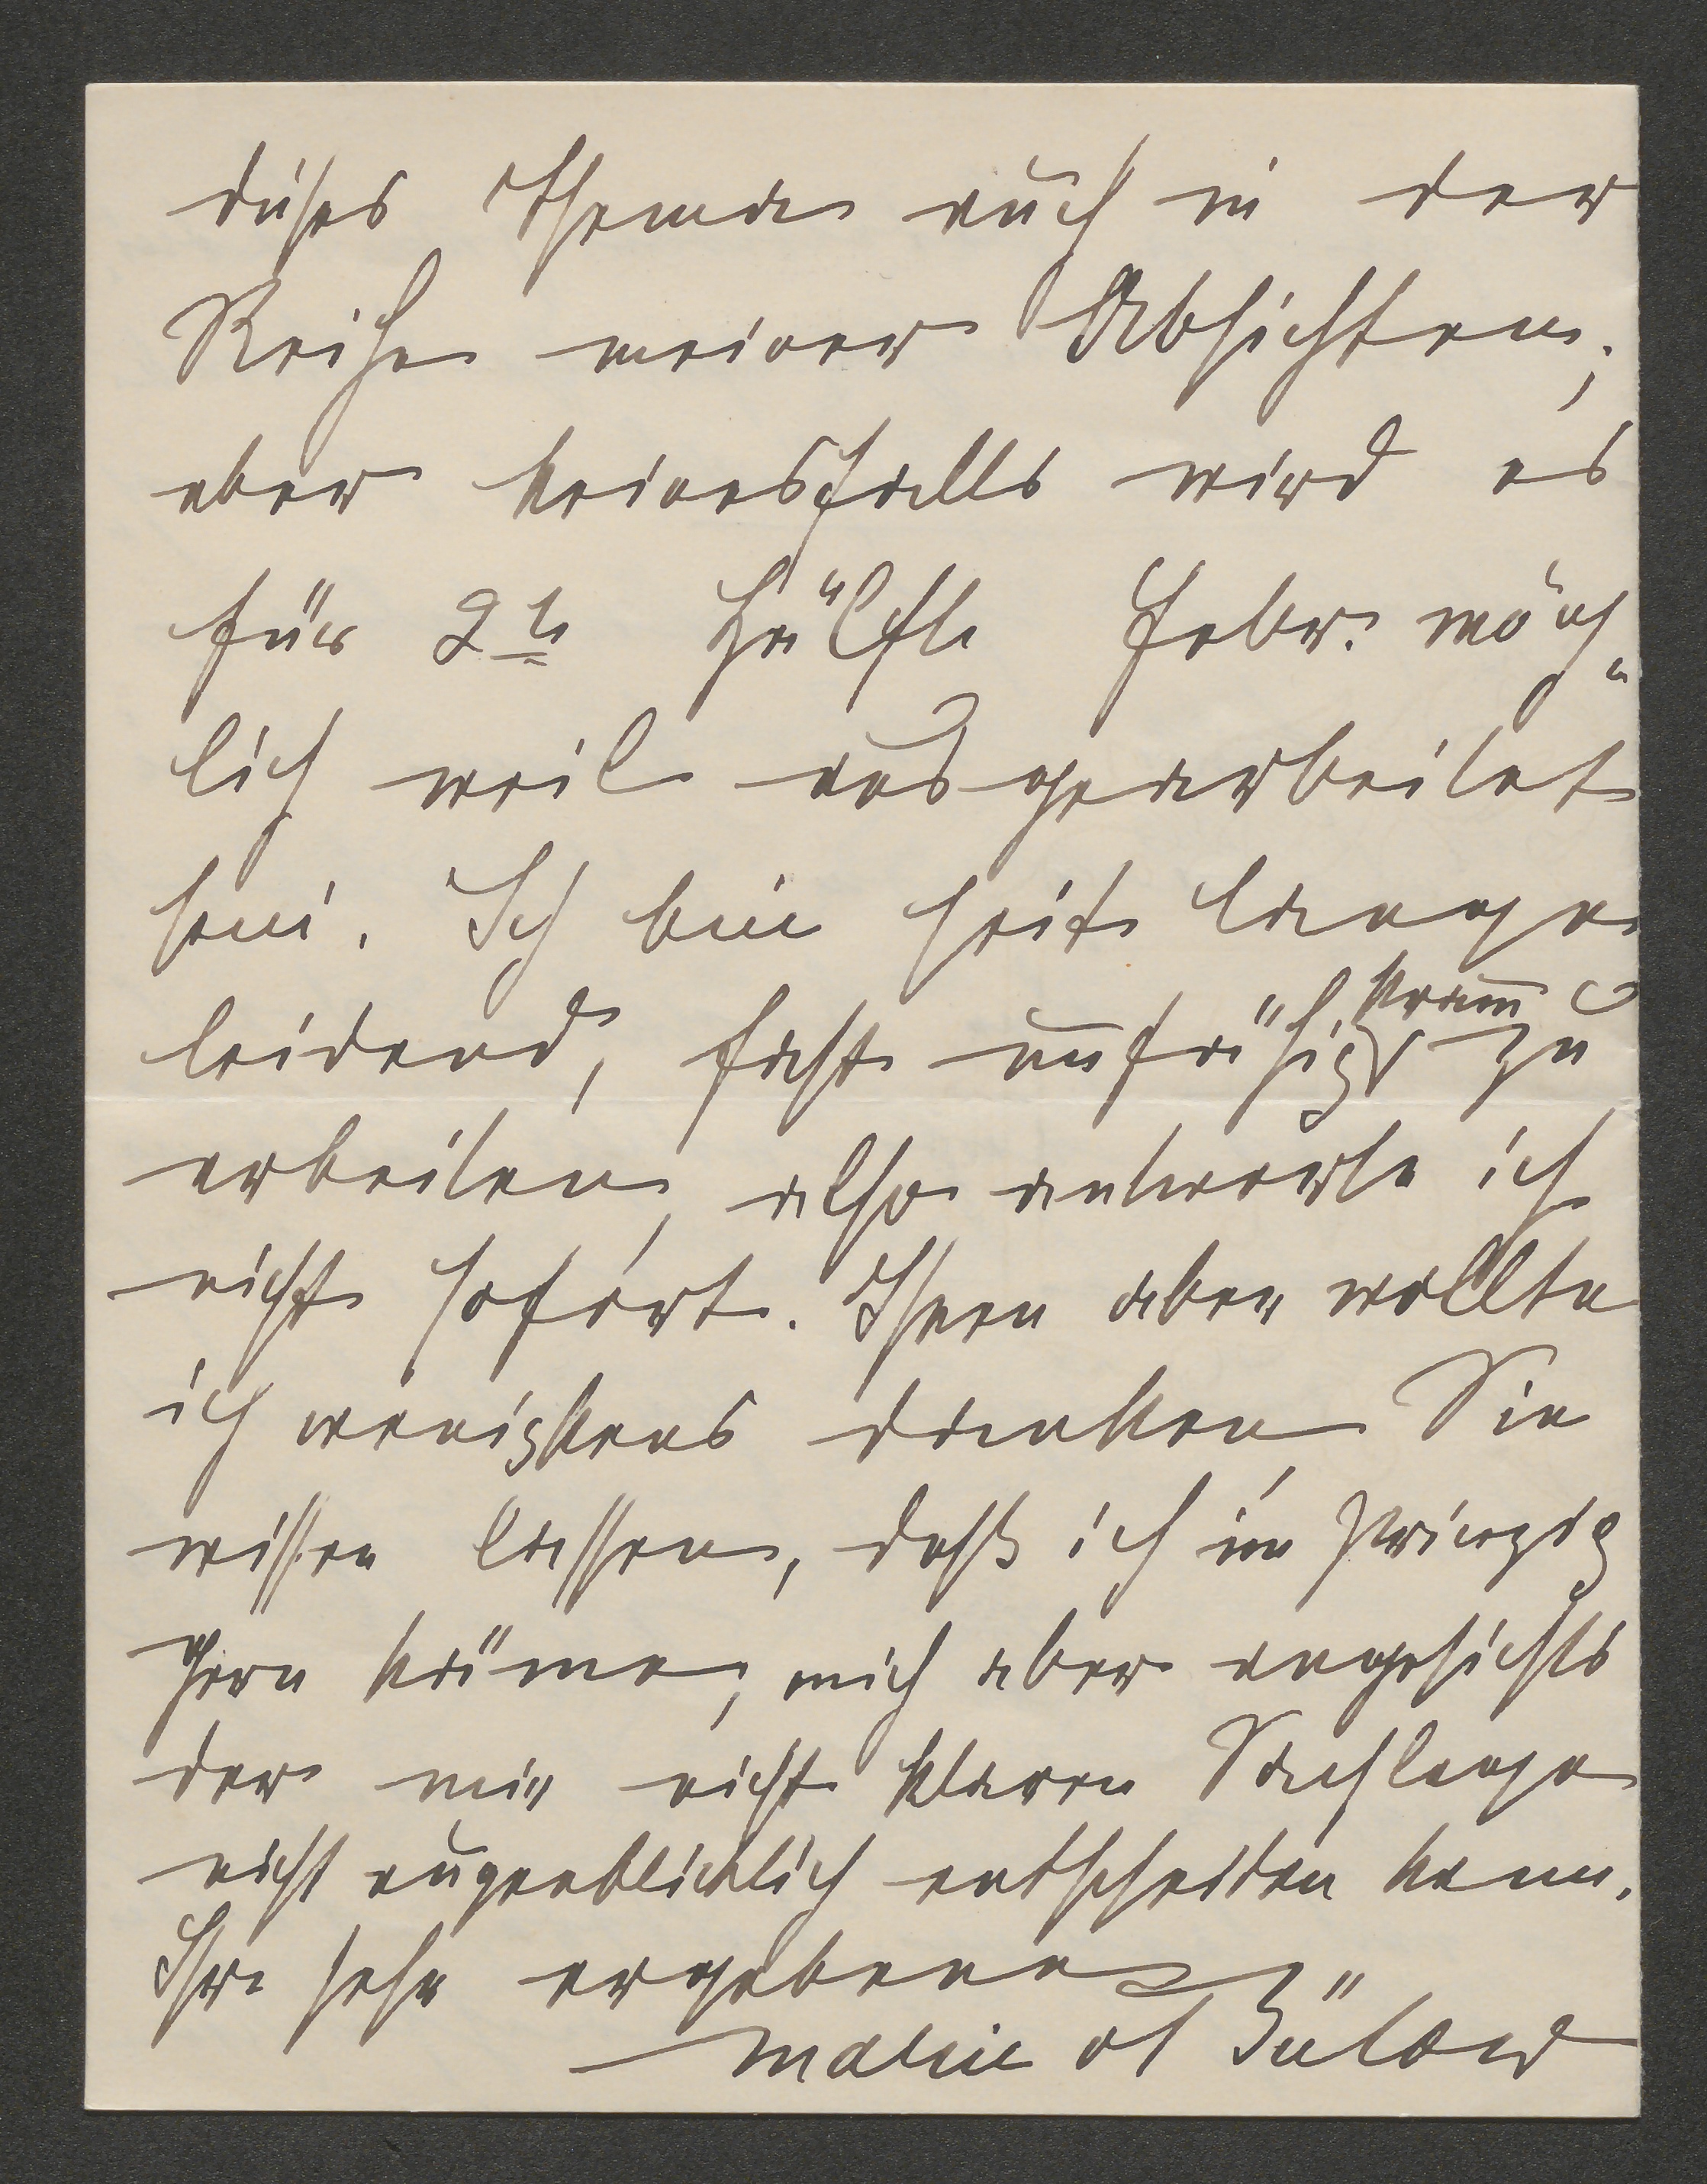 dieses Themas auch in der
Reihe meiner Absichten;
aber keinesfalls wird es
für 2te Hälfte Febr. mög-
lich weil ausgearbeitet
sein. Ich bin seit lange
leidend, fast unfähig kram zu
arbeiten, also antworte ich
nicht sofort. Ihnen aber wollte
ich wenigstens danken, Sie
wissen lassen, daß ich im Prinzip
gern käme, mich aber angesichts
der mir nicht klaren Sachlage
nicht augenblicklich entscheiden kann.
Ihre sehr ergebene
Bülow